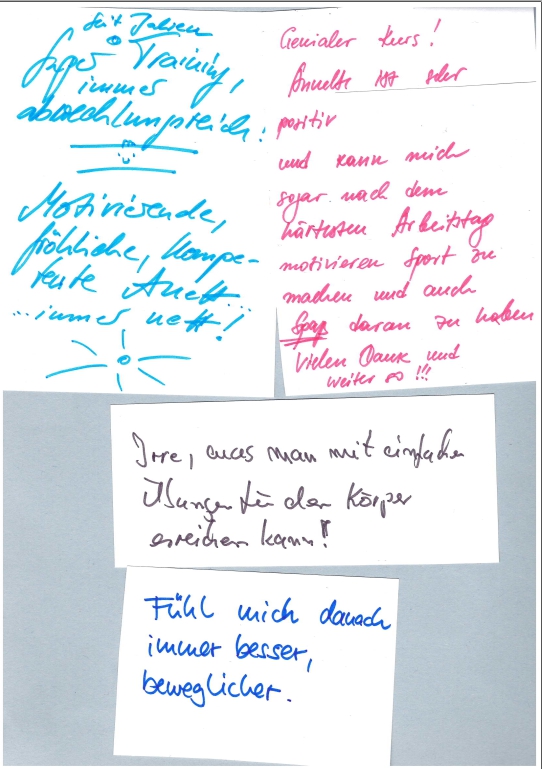 Seit Jahren
Super Training,
immer
abwechlungsreich.
Motivierende,
fröhliche, kompe-
tente Anett...
...immer nett!
Genialer Kurs!
Annette ist sehr
positiv
und kann mich
sogar nach dem
härtesten Arbeitstag
motivieren Sport zu
machen und auch
Spaß daran zu haben
Vielen Dank und
weiter so!!!
Irre, was man mit einfachen
Übungen für den Körper
erreichen kann!
Fühl mich danach
immer besser,
beweglicher.